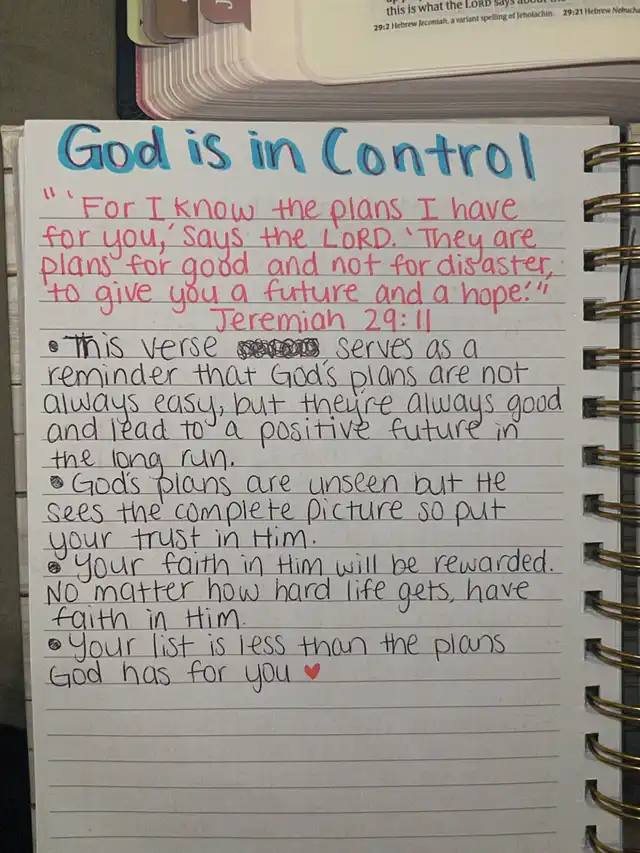 this is what the LORD says about the
29:2 Hebrew Jeconiah, a variant spelling of Jehoiachin. 29:21 Hebrew
God is in Control
"'For I know the plans I have
for you,' says the LORD. 'They are
plans for good and not for disaster,
to give you a future and a hope.'"
Jeremiah 29:11
• This verse serves as a
reminder that God's plans are not
always easy, but they're always good
and lead to a positive future in
the long run.
• God's plans are unseen but He
sees the complete picture so put
your trust in Him.
• Your faith in Him will be rewarded.
No matter how hard life gets, have
faith in Him.
• Your list is less than the plans
God has for you ♥